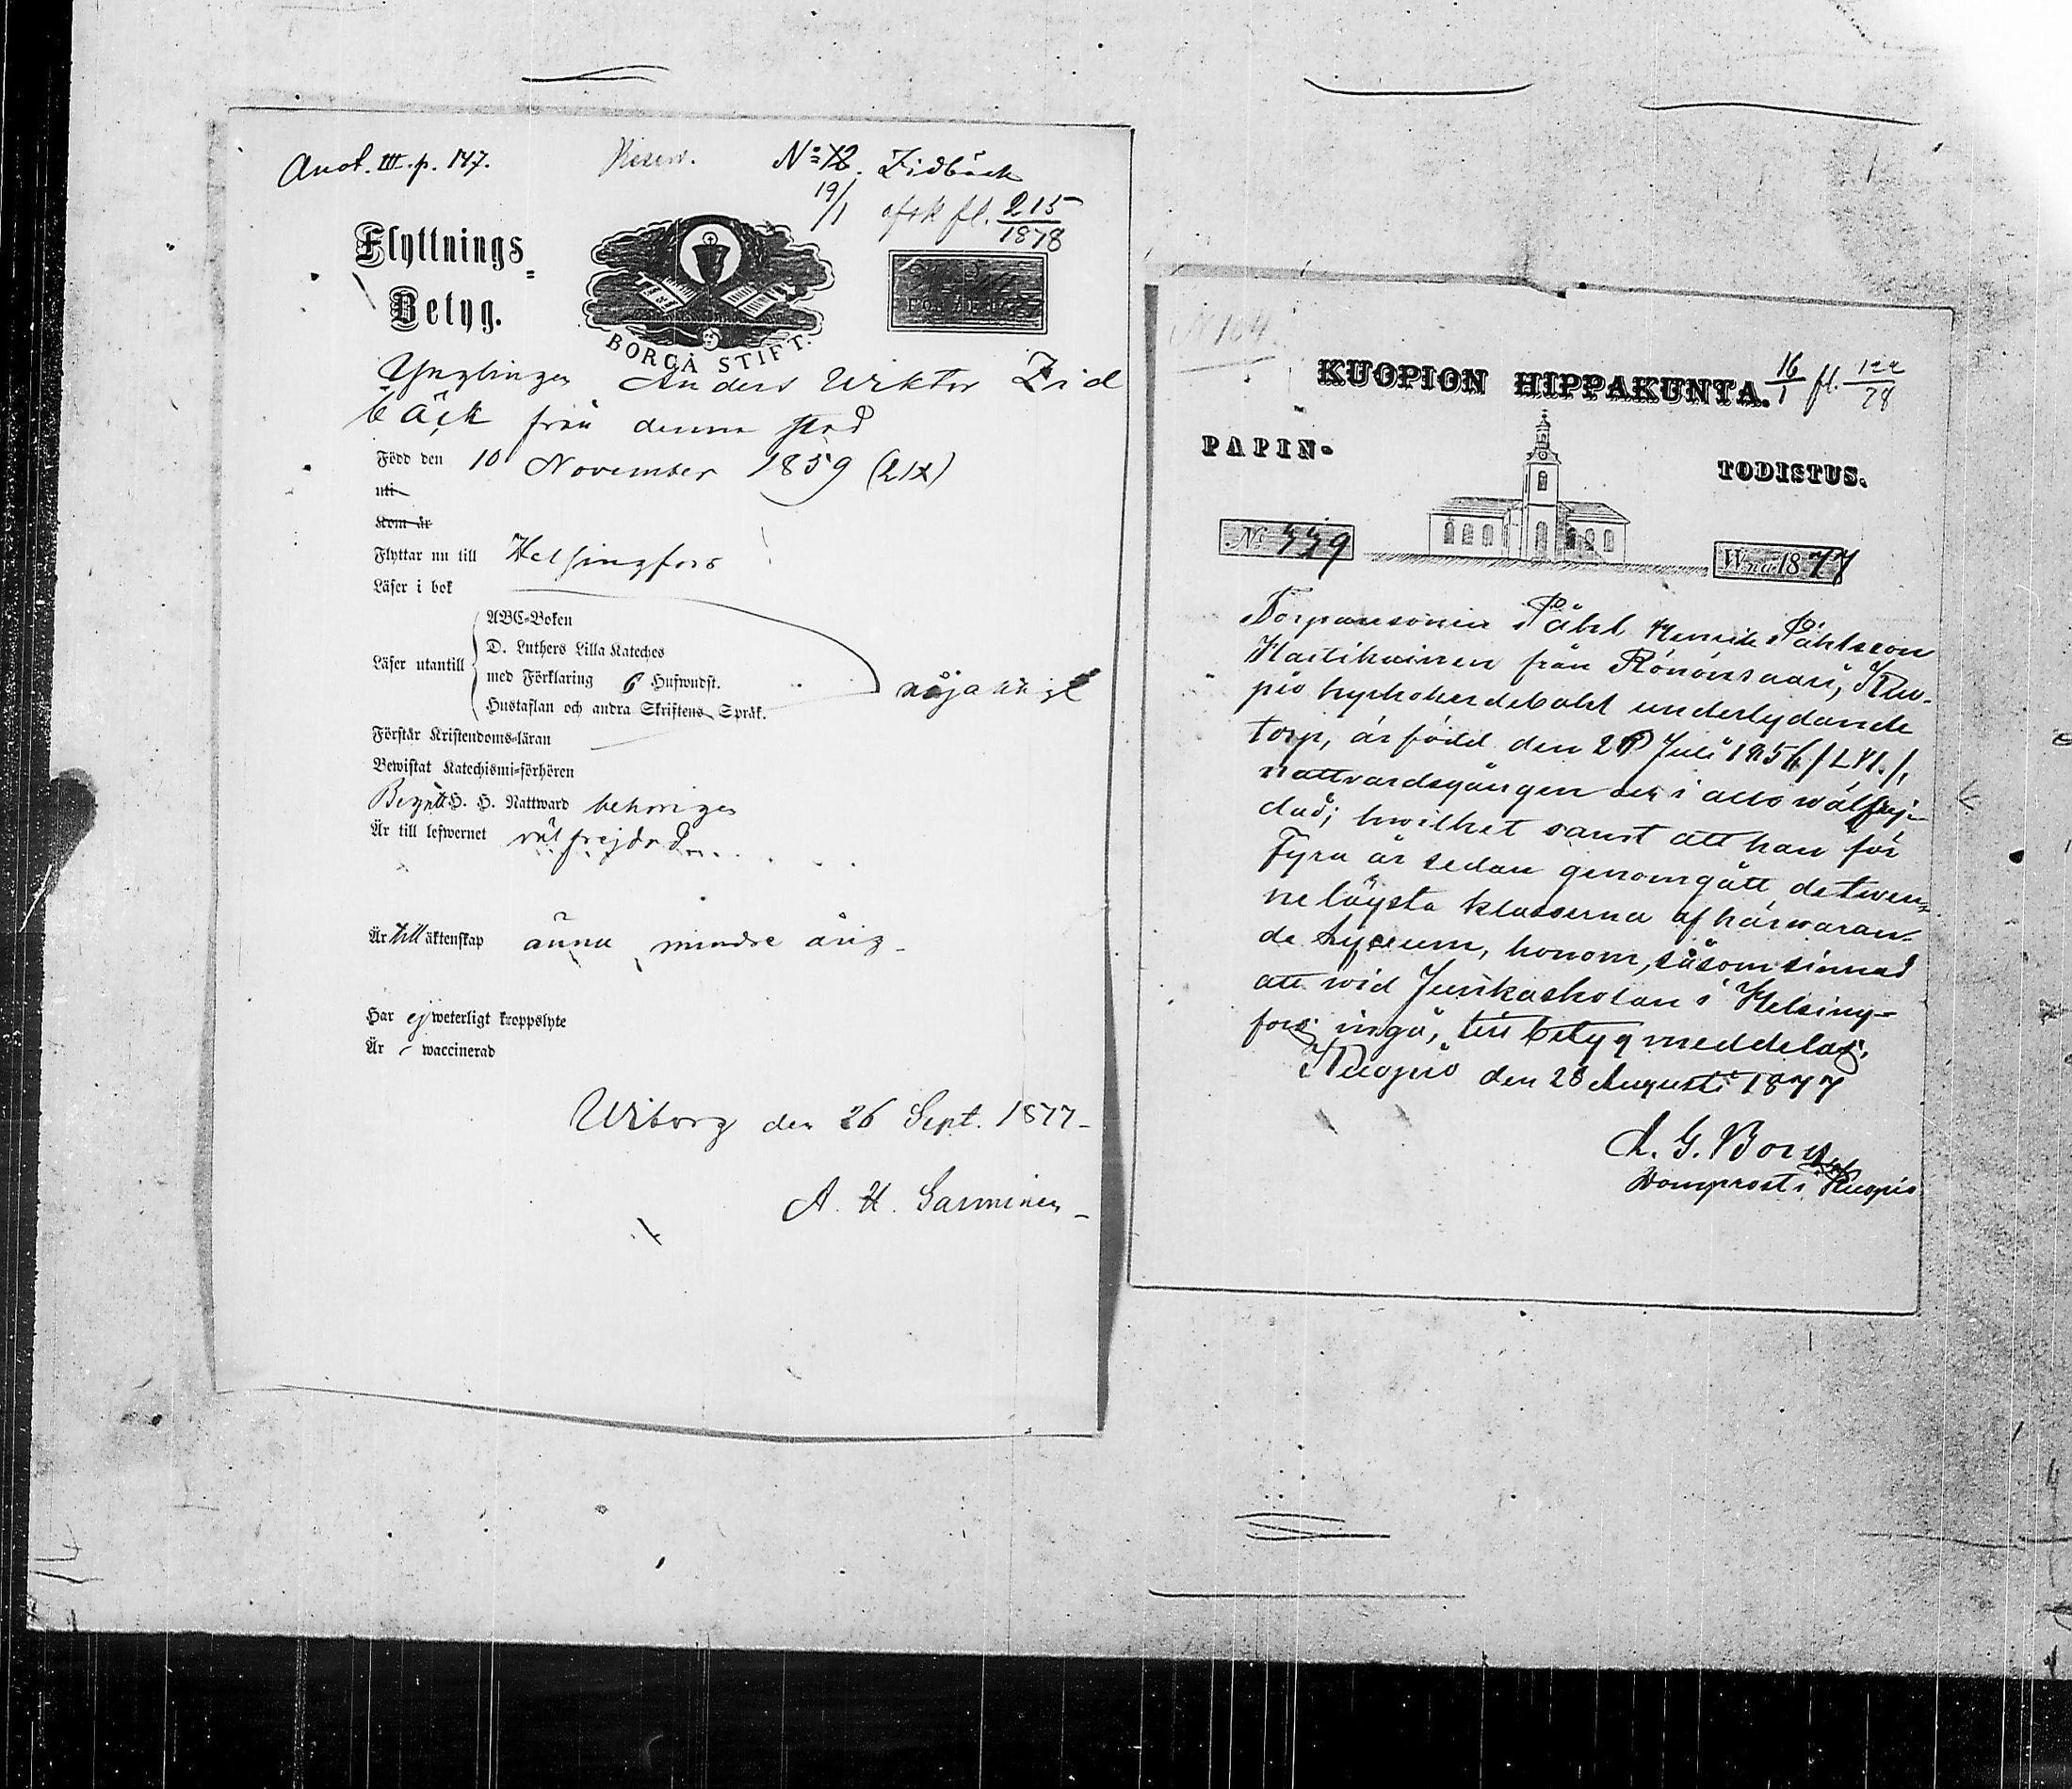 Anot. III. p. 147.
No 12. Zidbäck
19/1 fl. 215/1878
Flyttnings-
Betyg.
BORGÅ STIFT.
Ynglingen Anders Wiktor Zid
bäck från denna stad
Född den 10 November 1859 (LIX)
uti
Kom år
Flyttar nu till Helsingfors
Läser i bok
Läser utantill
ABC-Boken
D. Luthers Lilla Kateches
med Förklaring 6 Hufwudst.
Hustaflan och andra Skriftens Språk.
nöjaktigt
Förstår Kristendoms-läran
Bewistat Katechismi-förhören
Begått H. H. Nattward behörigen
Är till lefwernet välfrejdad
Är till äktenskap ännu mindre årig
Har ej weterligt kroppslyte
Är waccinerad
Wiborg den 26 Sept. 1877
A. H.
N 104
KUOPION HIPPAKUNTA. 16/1 fl. 122/78
PAPIN-
TODISTUS.
No 559
Wna 1877
Torparesonen Påhl Henrik Påhlsson
Hartikainen från Rönönsaari, Kuo-
pio kyrkoherdebohl underlydande
torp, är född den Juli 1856 /LVI./,
nattvardsgången och i allo wälfrej-
dad; hwilket samt att han för
fyra år sedan genomgått de twen-
ne lägsta klasserna af härwaran-
de Lyceum, honom, såsom sinnad
att wid Junkaskolan i Helsing-
fors ingå, till betyg meddelas.
Kuopio den 28 Augusti 1877
A. G. Borg
Domprost i Kuopio